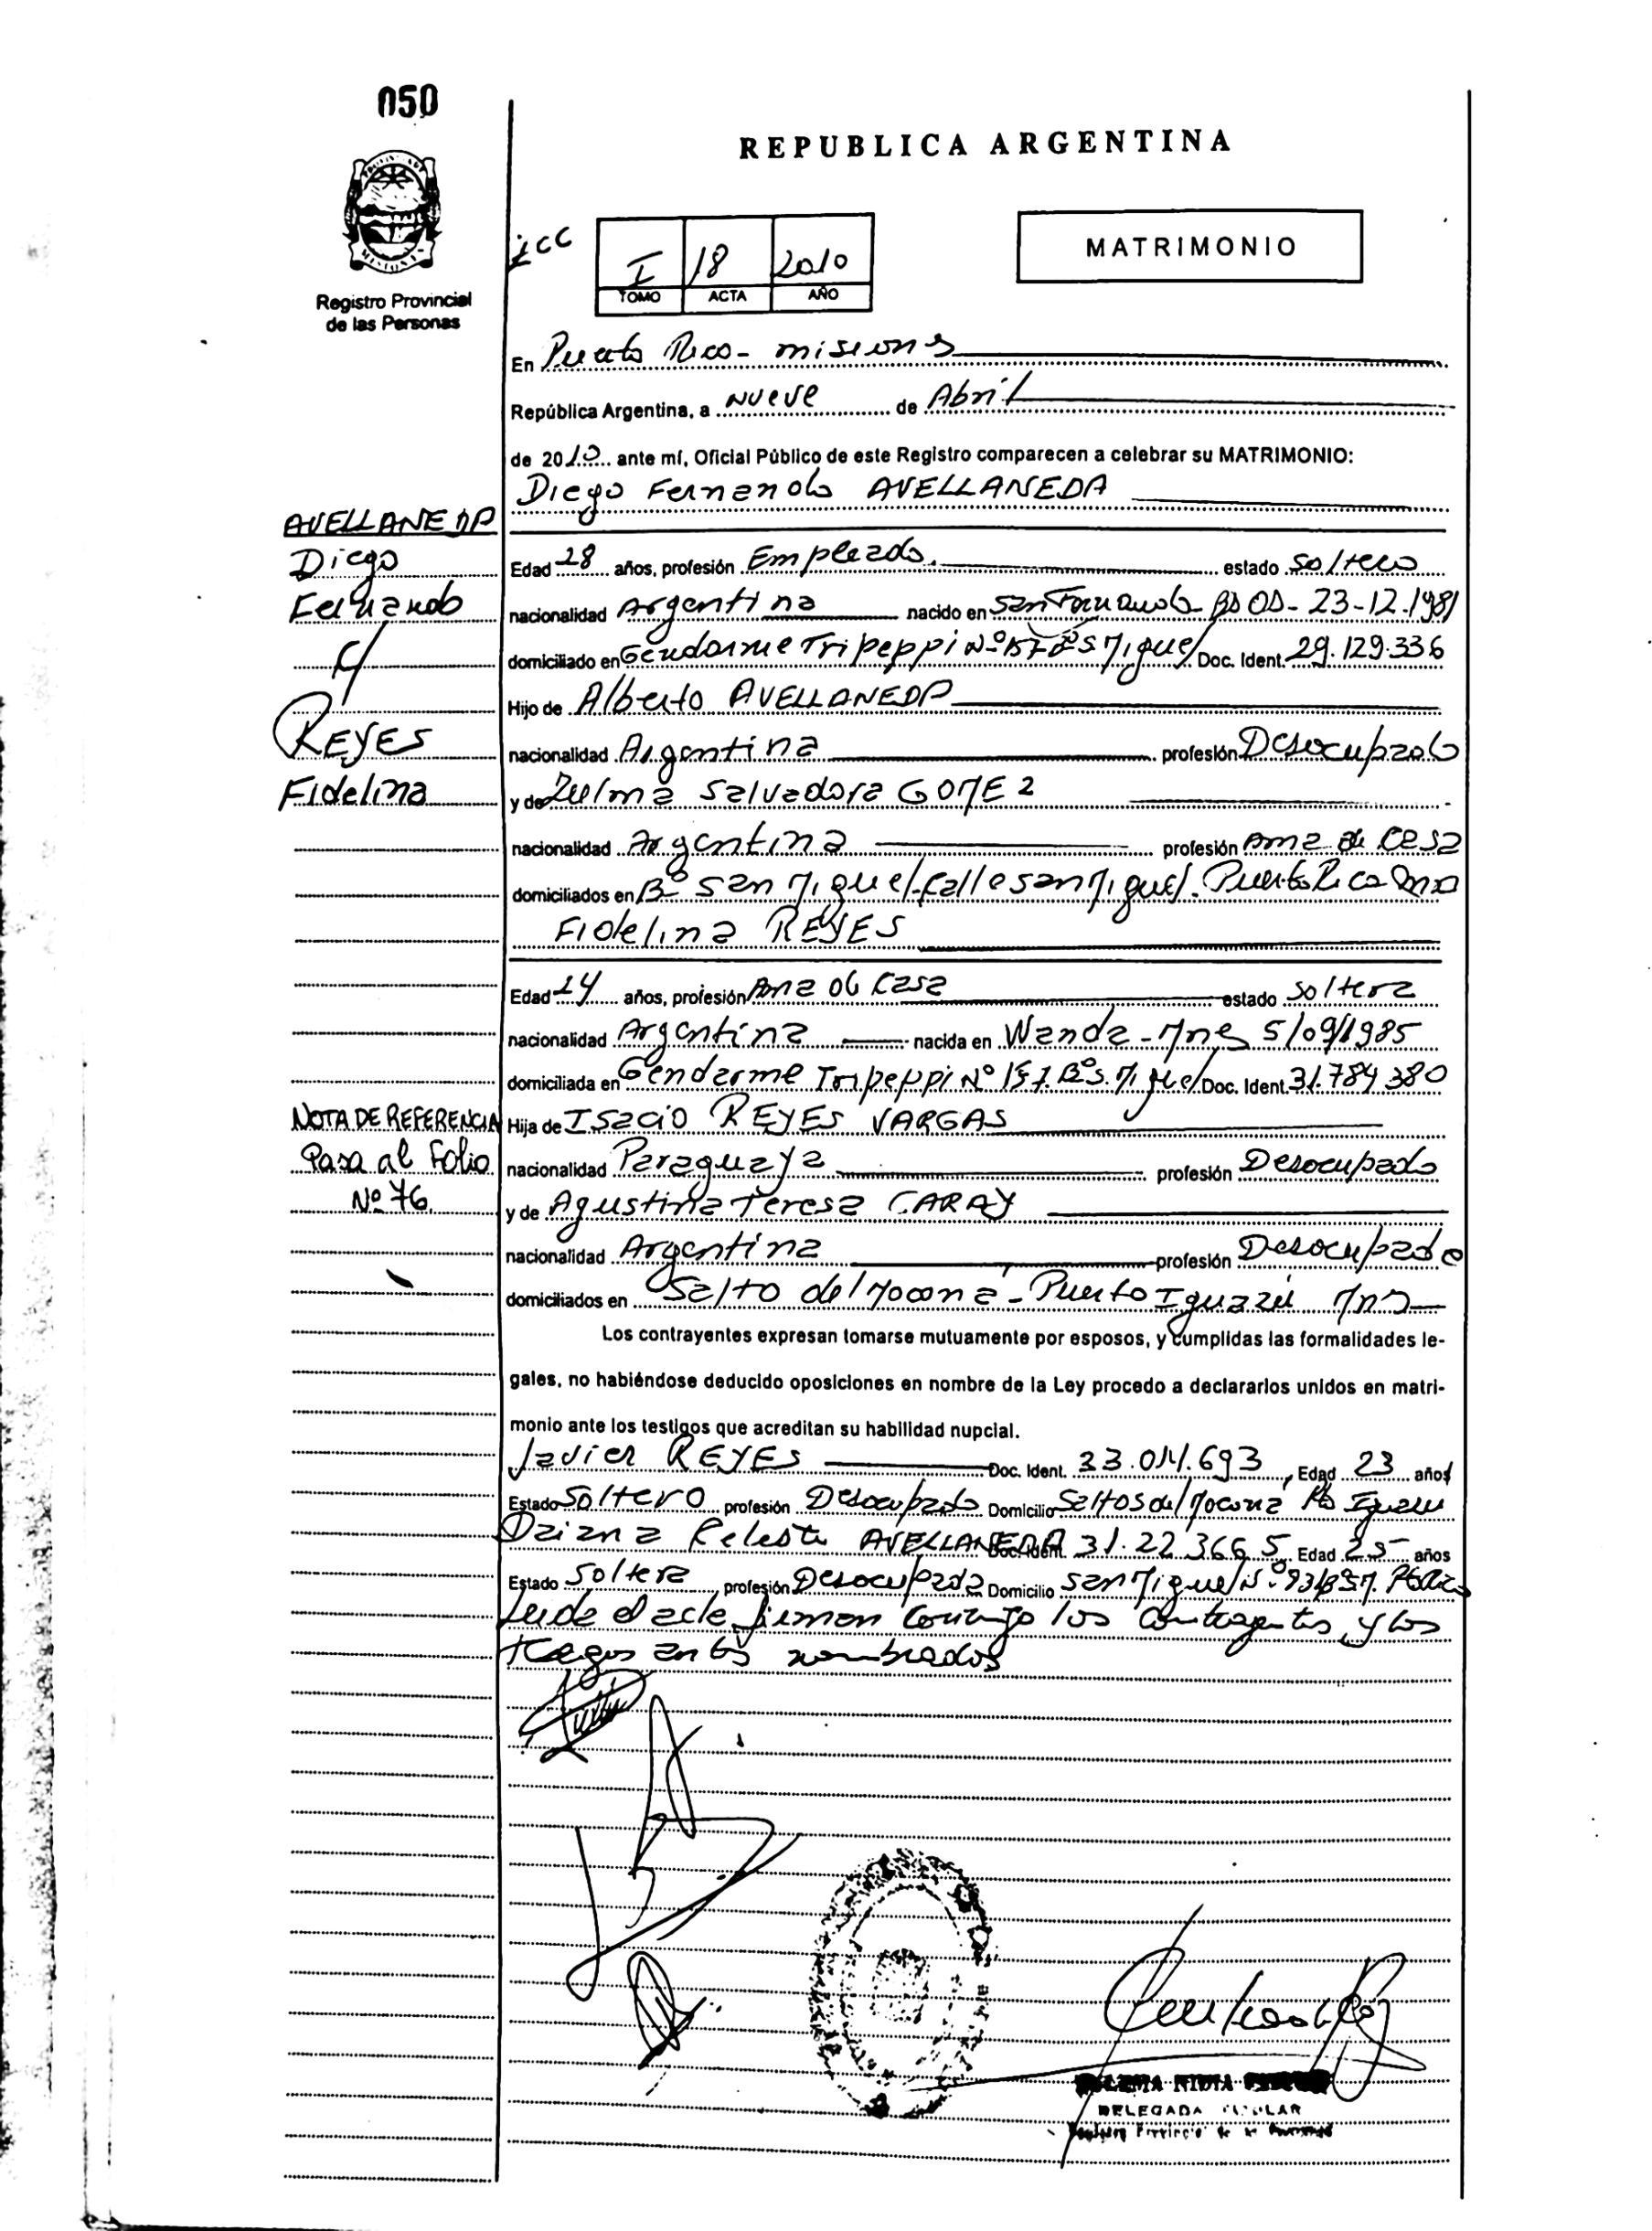 050
REPUBLICA ARGENTINA
MISIONES
Registro Provincial
de las Personas
I 18 2010
TOMO ACTA AÑO
MATRIMONIO
En Puerto Rico - misiones
República Argentina, a Nueve de Abril
de 2010 ante mí, Oficial Público de este Registro comparecen a celebrar su MATRIMONIO:
Diego Fernando AVELLANEDA
AVELLANEDA
Diego
Fernando
y
REYES
Fidelina
Edad 28 años, profesión Empleado. estado soltero
nacionalidad Argentina nacido en San Fernando Bs As - 23-12-1981
domiciliado en Gendarme Tripeppi Nº 157 Bº S Miguel Doc. Ident. 29.129.336
Hijo de Alberto AVELLANEDA
nacionalidad Argentina profesión Desocupado
y de Zulma Salvadora GOMEZ
nacionalidad Argentina profesión Ama de Casa
domiciliados en Bº San Miguel - Calle San Miguel. Puerto Rico Mns
Fidelina REYES
Edad 24 años, profesión Ama de Casa estado soltera
nacionalidad Argentina nacida en Wanda - Mnes 5/09/1985
domiciliada en Gendarme Tripeppi Nº 157. Bº S. Miguel Doc. Ident. 31.784.380
NOTA DE REFERENCIA
Pasa al Folio
Nº 76.
Hija de Isacio REYES VARGAS
nacionalidad Paraguaya profesión Desocupado
y de Agustina Teresa CARAY
nacionalidad Argentina profesión Desocupado
domiciliados en Salto del Mocona - Puerto Iguazú Mns
Los contrayentes expresan tomarse mutuamente por esposos, y cumplidas las formalidades le-
gales, no habiéndose deducido oposiciones en nombre de la Ley procedo a declararlos unidos en matri-
monio ante los testigos que acreditan su habilidad nupcial.
Javier REYES Doc. Ident. 33.014.693, Edad 23 años
Estado Soltero profesión Desocupado Domicilio Saltos del Mocona Pto Iguazu
Daiana Celeste AVELLANEDA Doc. Ident. 31.22 366 5 Edad 25 años
Estado Soltera profesión Desocupada Domicilio San Miguel Nº
Leida el acta firman conmigo los contrayentes y los
testigos antes nombrados
DELEGADA TITULAR
Registro Provincial de las Personas